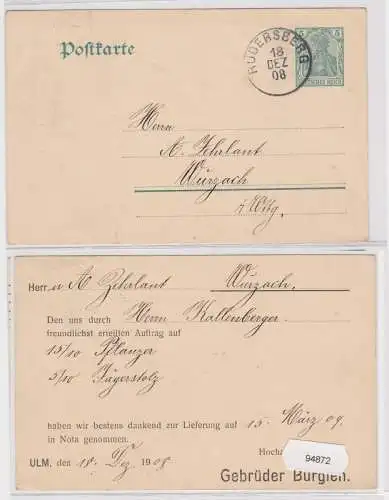 Postkarte
RUDERSBERG
18
DEZ
08
5 5
DEUTSCHES REICH
Herrn
A. Zehrlaut
Wurzach
i/Wttg.
Herrn A Zehrlaut Wurzach.
Den uns durch Herrn Kallenberger
freundlichst erteilten Auftrag auf
15/10 Pflanzer
5/10 Jägerstolz
haben wir bestens dankend zur Lieferung auf 15. März 09.
in Nota genommen.
Hoch
ULM, den 18. Dez. 1908
Gebrüder Bürglen.
94872